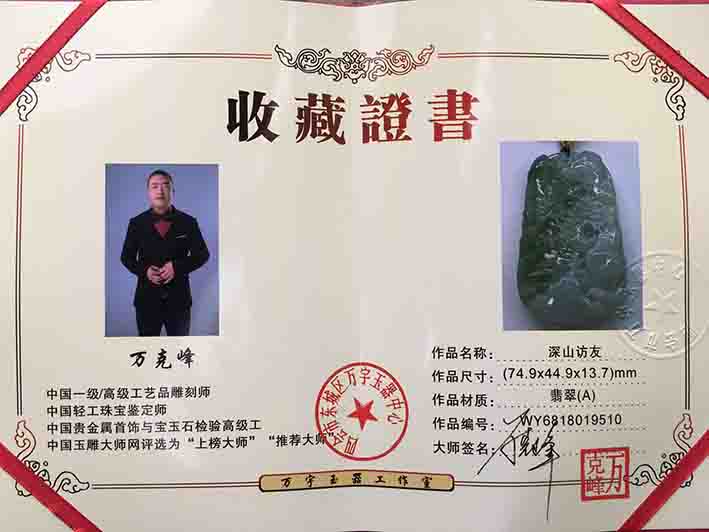 收藏證書
万克峰
中国一级/高级工艺品雕刻师
中国轻工珠宝鉴定师
中国贵金属首饰与宝玉石检验高级工
中国玉雕大师网评选为“上榜大师” “推荐大师”
四会市东城区万字玉器中心
作品名称: 深山访友
作品尺寸: (74.9x44.9x13.7)mm
作品材质: 翡翠(A)
作品编号: WY6818019510
大师签名:
万克峰
万字玉器工作室